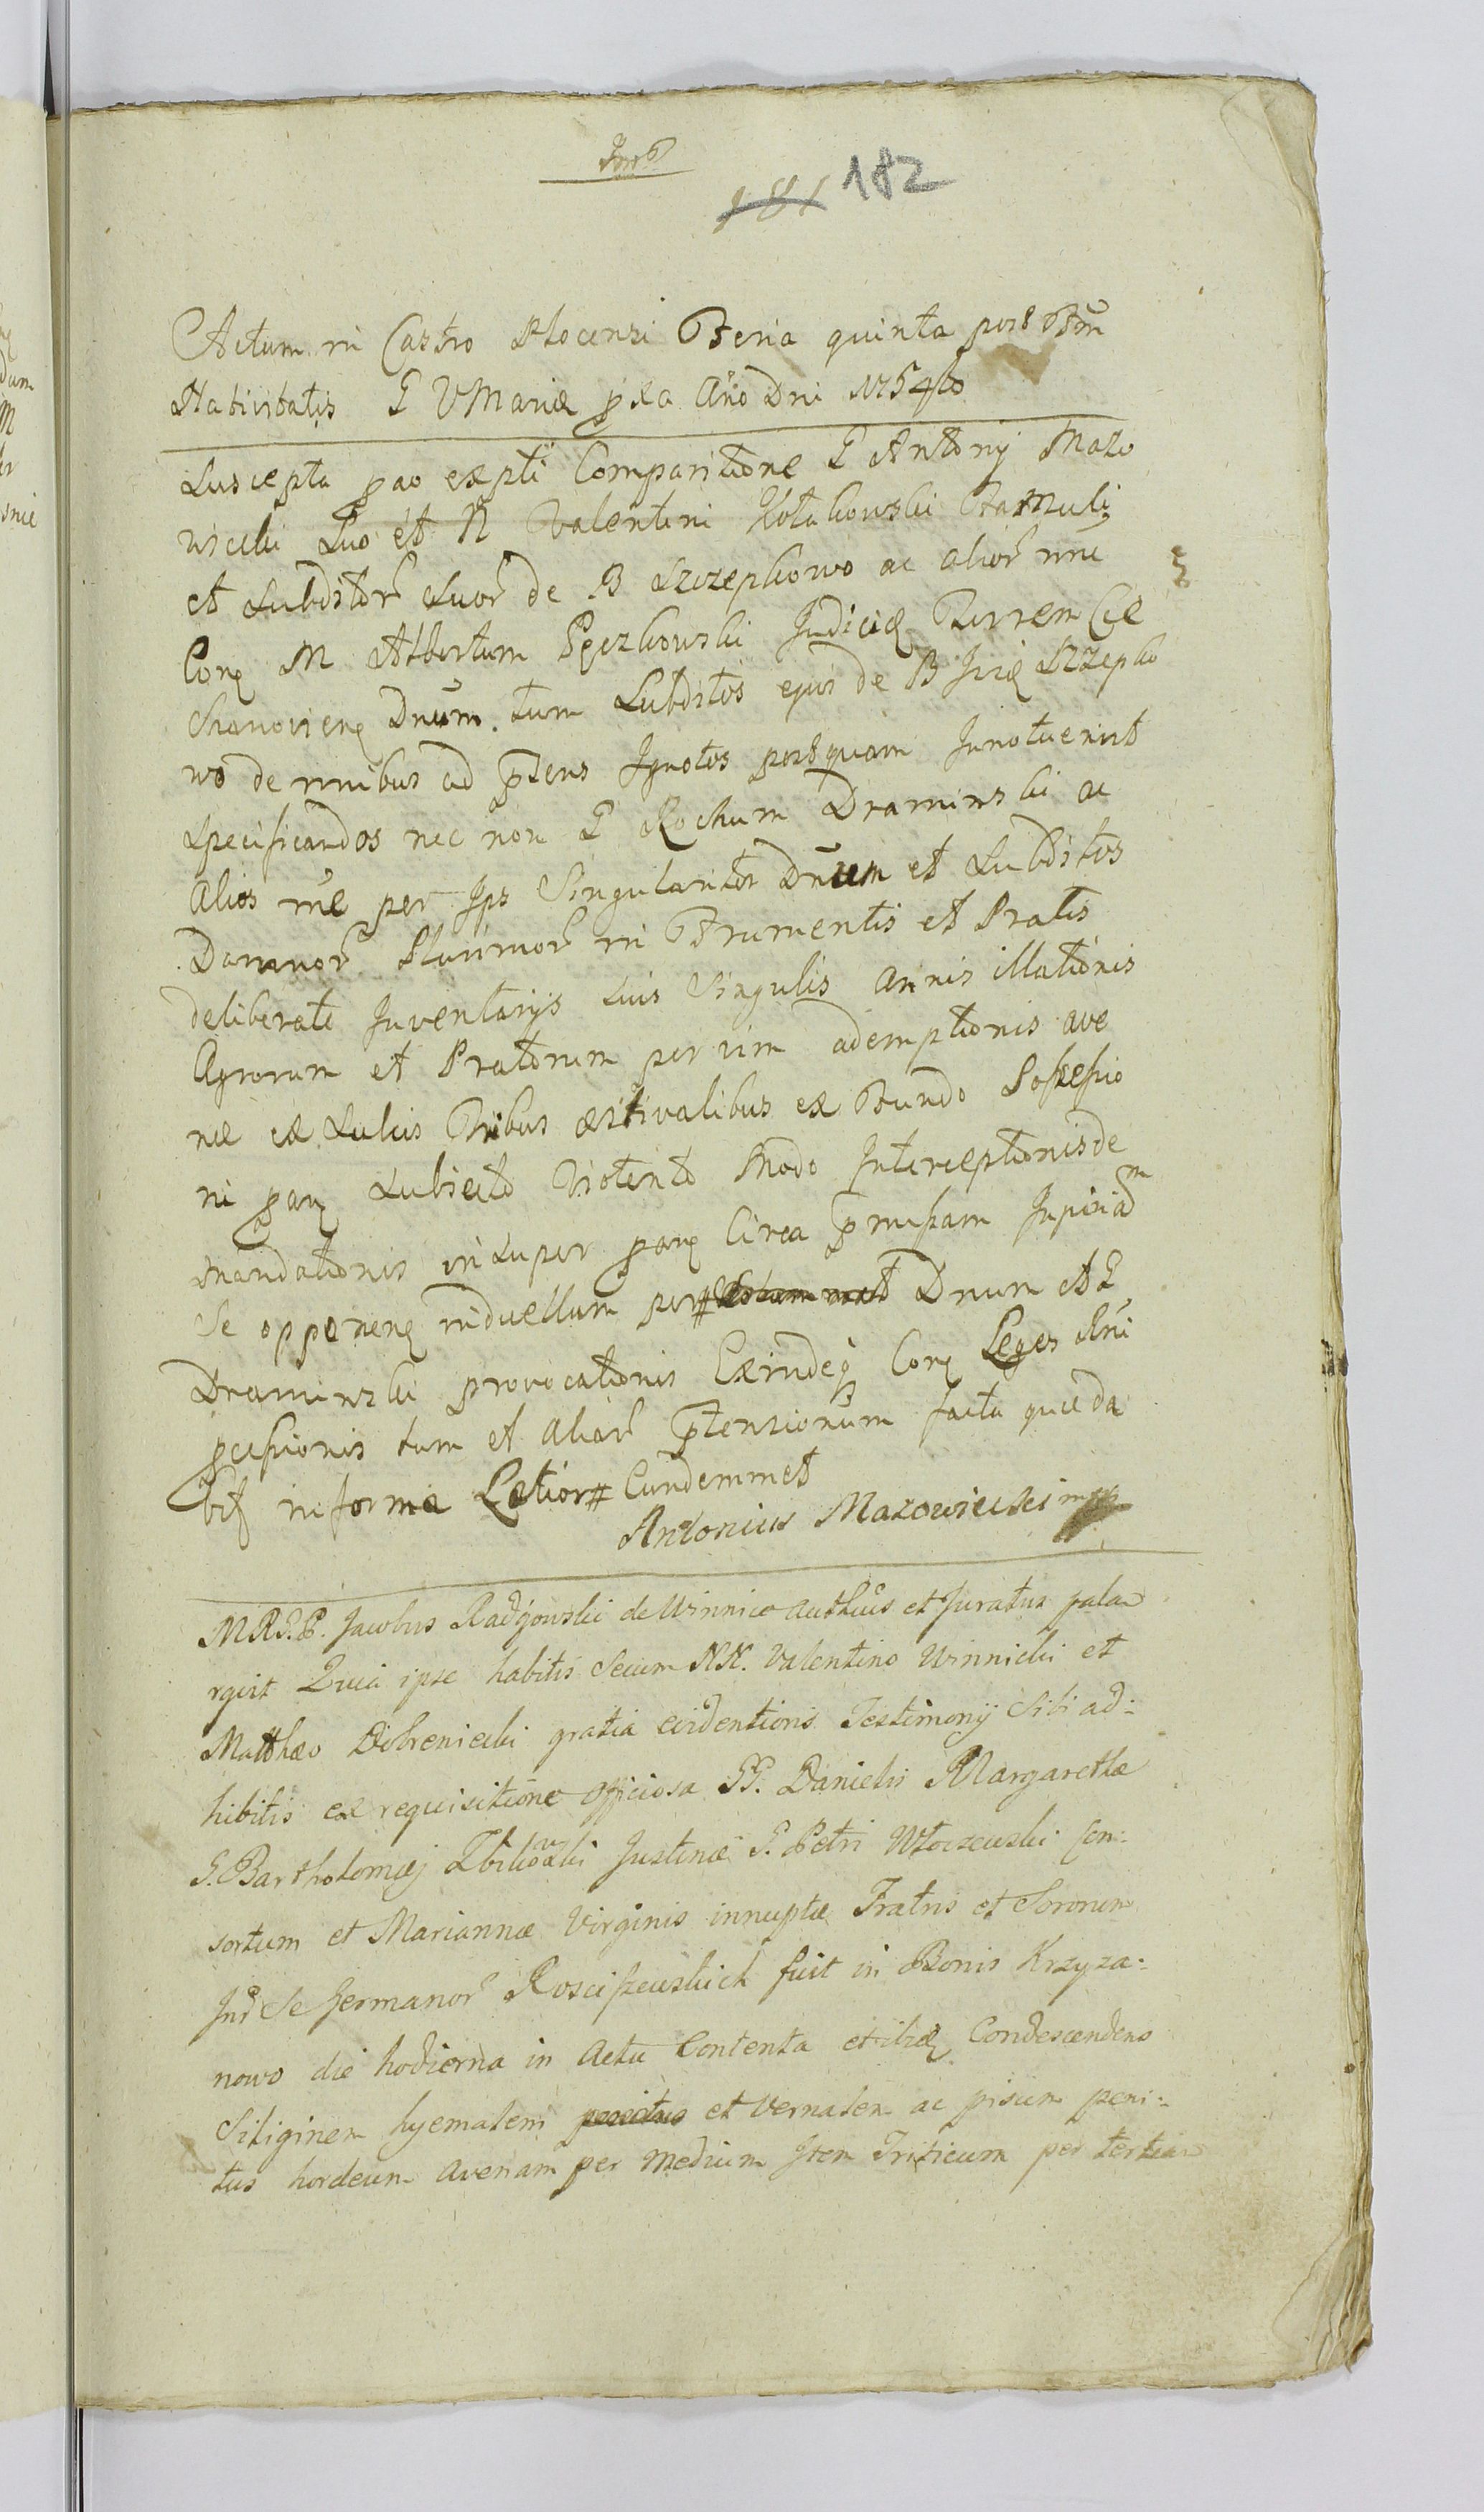 181 182
Actum in Castro Plocensi Feria quinta post Ftm
Nativitatis B V Mariæ pxa Año Dni 1754to
Suscepta pao expti Comparitione G Antonij Mazo
wiecki Suo et N Valentini Kołakowski Famuli
et Subditor Suor de B Szczepkowo ac alior nrie
Conq M Albertum Pęczkowski Judicię Terrem Cie
chanovienq Dnum. tum Subditos ejus de B Jrię Szczepko
wo de nnibus ad ptens Ignotos postquam Innotuerint
Specificandos nec non G Rochum Draminski ac
Alios me per Ips Singulariter Dnum et Subditos
Damnor Plurimor in Frumentis et Pratis
deliberate Inventarijs suis Singulis annis illationis
Agrorum et Pratorum per vim ademptionis ave
næ ex Sulcis Tribus æstivalibus ex Fundo Possessio
ni panq Subjecto Violento Modo Interceptionis de
mandationis insuper panq Circa pmissam Injuriam
Se opponenq in duellum per # Dnum et G
Draminski provocationis Exindeq Conq Leges Rni
pcessionis tum et aliar ptensionum facta quæda
bit in forma Lætior # Eundemmet
Antonius Mazowiecki mpp
M R G. P. Jacobus Radzjowski de Winnice authcus et Juratus pala
rgvit Quia ipse habitis Secum NN. Valentino Winnicki et
Matthæo Dobrenieck gratia evidentioris Testimonij Sibi ad:
hibitis ex requisitione officiosa GG. Danielis Margarethæ
G. Bartholomæj Zbikowski Justinæ G. Petri Włoczewski Con:
sortum et Mariannæ Virginis innuptæ Fratris et Sororum
Int Se germanor Rosciszewskich fuit in Bonis Krzyza:
nowo die hodierna in Actu Contenta et ibiq Condescendens
Siliginem hyemalem et Vernalem ac pisum peni:
tus hordeum Avenam per Medium Item Triticum per tertia